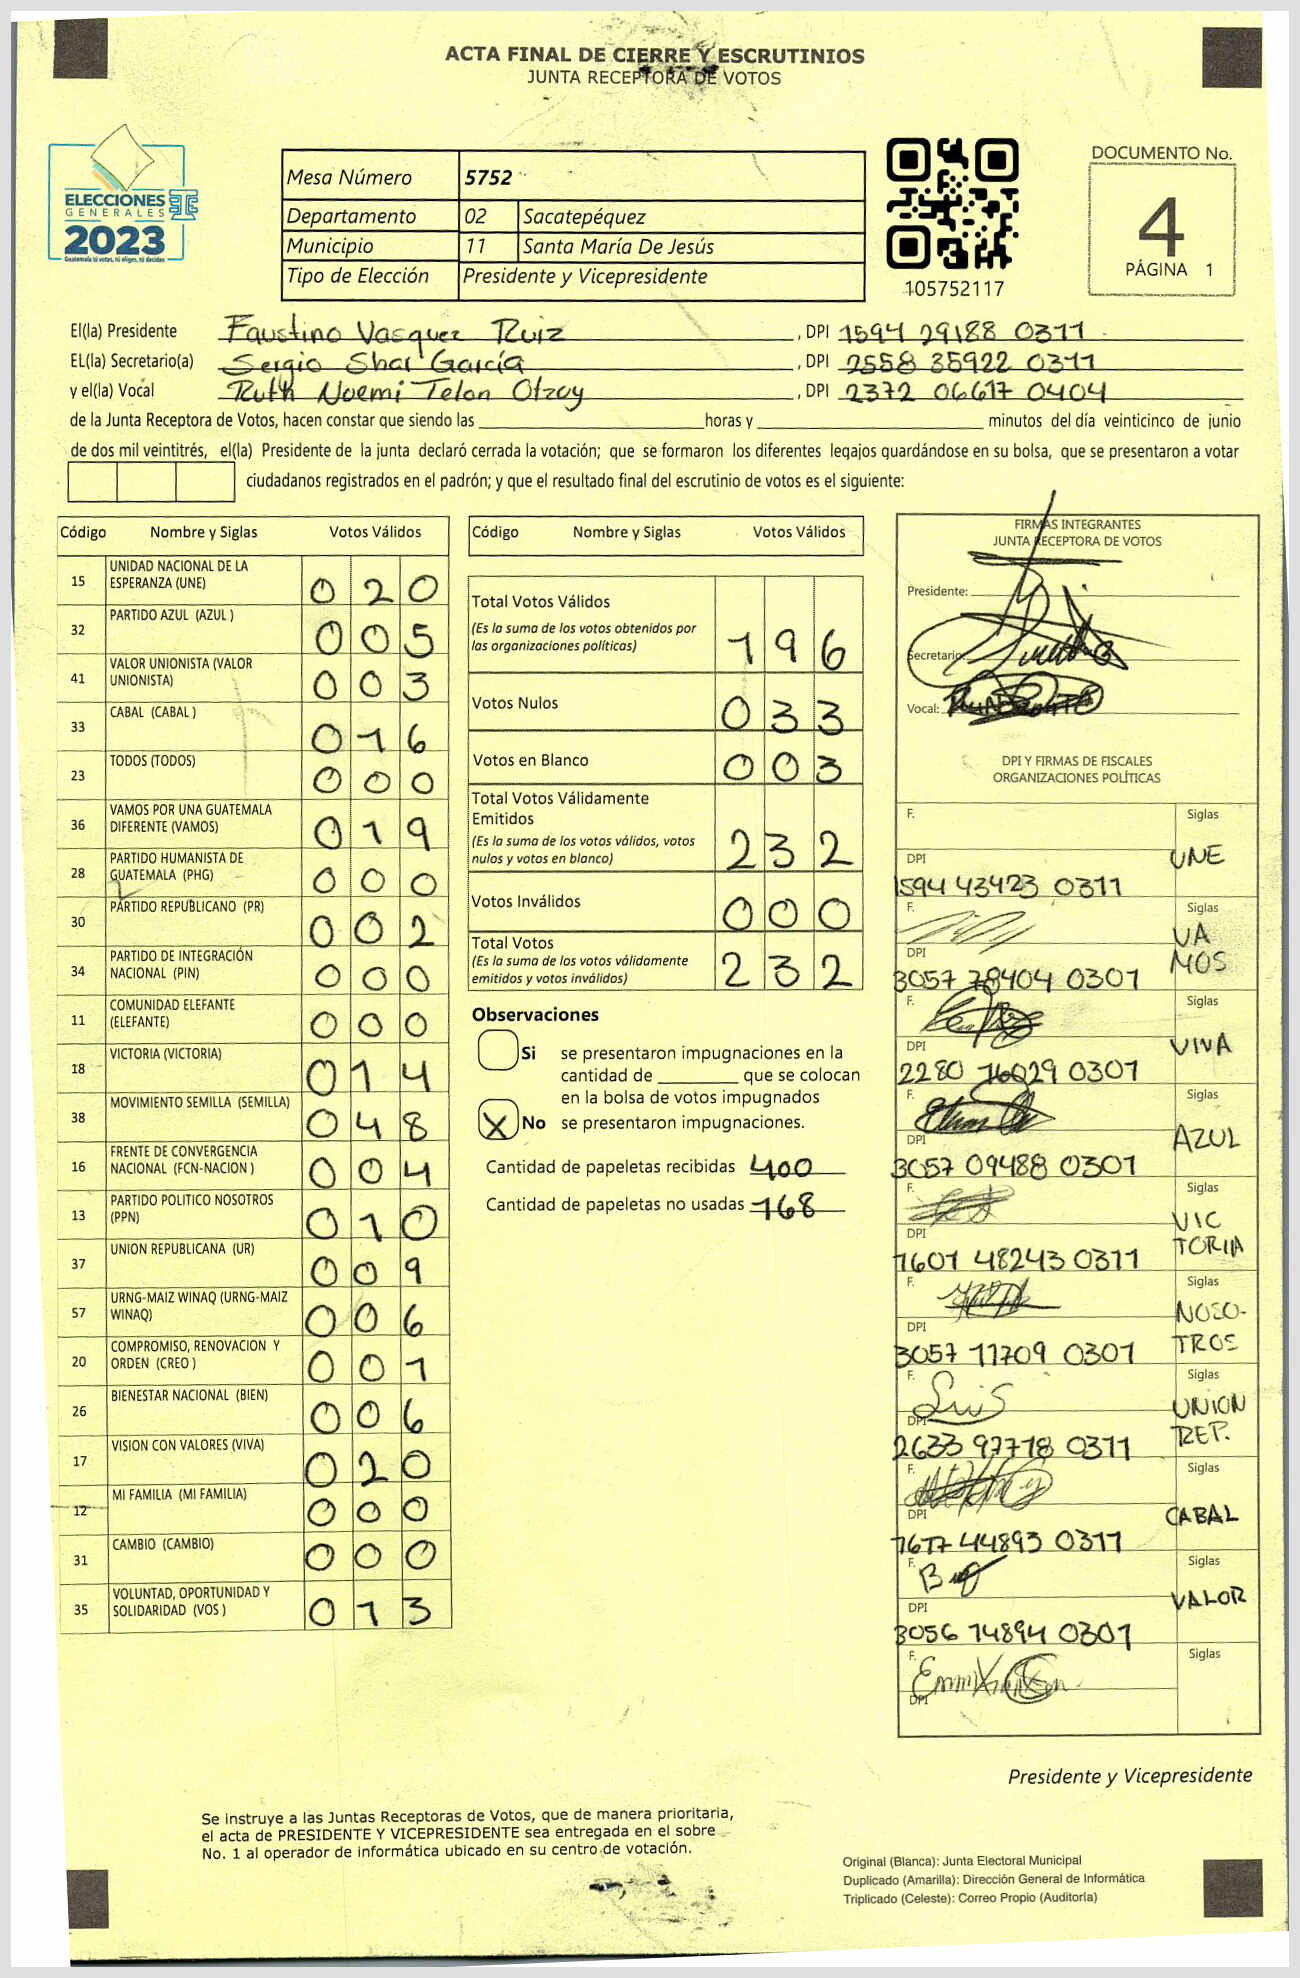 ACTA FINAL DE CIERRE Y ESCRUTINIOS
JUNTA RECEPTORA DE VOTOS
ELECCIONES
GENERALES
2023
Guatemala tú votas, tú eliges, tú decides
Mesa Número 5752
Departamento 02 Sacatepéquez
Municipio 11 Santa María De Jesús
Tipo de Elección Presidente y Vicepresidente
105752117
DOCUMENTO No.
4
PÁGINA 1
El(la) Presidente Faustino Vasquez Ruiz, DPI 1594 29188 0311
EL(la) Secretario(a) Sergio Shar García, DPI 2558 35922 0311
y el(la) Vocal Ruth Noemi Telon Otzoy, DPI 2372 06617 0404
de la Junta Receptora de Votos, hacen constar que siendo las ____ horas y ____ minutos del día veinticinco de junio
de dos mil veintitrés, el(la) Presidente de la junta declaró cerrada la votación; que se formaron los diferentes legajos guardándose en su bolsa, que se presentaron a votar
ciudadanos registrados en el padrón; y que el resultado final del escrutinio de votos es el siguiente:
Código Nombre y Siglas Votos Válidos
15 UNIDAD NACIONAL DE LA ESPERANZA (UNE) 0 2 0
32 PARTIDO AZUL (AZUL ) 0 0 5
41 VALOR UNIONISTA (VALOR UNIONISTA) 0 0 3
33 CABAL (CABAL ) 0 1 6
23 TODOS (TODOS) 0 0 0
36 VAMOS POR UNA GUATEMALA DIFERENTE (VAMOS) 0 1 9
28 PARTIDO HUMANISTA DE GUATEMALA (PHG) 0 0 0
30 PARTIDO REPUBLICANO (PR) 0 0 2
34 PARTIDO DE INTEGRACIÓN NACIONAL (PIN) 0 0 0
11 COMUNIDAD ELEFANTE (ELEFANTE) 0 0 0
18 VICTORIA (VICTORIA) 0 1 4
38 MOVIMIENTO SEMILLA (SEMILLA) 0 4 8
16 FRENTE DE CONVERGENCIA NACIONAL (FCN-NACION ) 0 0 4
13 PARTIDO POLITICO NOSOTROS (PPN) 0 1 0
37 UNION REPUBLICANA (UR) 0 0 9
57 URNG-MAIZ WINAQ (URNG-MAIZ WINAQ) 0 0 6
20 COMPROMISO, RENOVACION Y ORDEN (CREO ) 0 0 1
26 BIENESTAR NACIONAL (BIEN) 0 0 6
17 VISION CON VALORES (VIVA) 0 2 0
12 MI FAMILIA (MI FAMILIA) 0 0 0
31 CAMBIO (CAMBIO) 0 0 0
35 VOLUNTAD, OPORTUNIDAD Y SOLIDARIDAD (VOS ) 0 1 3
Código Nombre y Siglas Votos Válidos
Total Votos Válidos 1 9 6
(Es la suma de los votos obtenidos por
las organizaciones políticas)
Votos Nulos 0 3 3
Votos en Blanco 0 0 3
Total Votos Válidamente
Emitidos 2 3 2
(Es la suma de los votos válidos, votos
nulos y votos en blanco)
Votos Inválidos 0 0 0
Total Votos 2 3 2
(Es la suma de los votos válidamente
emitidos y votos inválidos)
Observaciones
Si se presentaron impugnaciones en la
cantidad de ____ que se colocan
en la bolsa de votos impugnados
X No se presentaron impugnaciones.
Cantidad de papeletas recibidas 400
Cantidad de papeletas no usadas 168
FIRMAS INTEGRANTES
JUNTA RECEPTORA DE VOTOS
Presidente:
Secretario:
Vocal:
DPI Y FIRMAS DE FISCALES
ORGANIZACIONES POLÍTICAS
F. Siglas
DPI UNE
1594 43423 0311
F. Siglas
DPI VA
MOS
3057 78404 0301
F. Siglas
DPI VIVA
2280 16029 0301
F. Siglas
DPI AZUL
3057 09488 0301
F. Siglas
DPI VIC
TORIA
1601 48243 0311
F. Siglas
DPI NOSO-
TROS
3057 11709 0301
F. Luis Siglas
DPI UNION
REP.
2633 97718 0311
F. Siglas
DPI CABAL
1617 44893 0311
F. Siglas
DPI VALOR
3056 14894 0301
F. Siglas
DPI
Presidente y Vicepresidente
Se instruye a las Juntas Receptoras de Votos, que de manera prioritaria,
el acta de PRESIDENTE Y VICEPRESIDENTE sea entregada en el sobre
No. 1 al operador de informática ubicado en su centro de votación.
Original (Blanca): Junta Electoral Municipal
Duplicado (Amarilla): Dirección General de Informática
Triplicado (Celeste): Correo Propio (Auditoría)